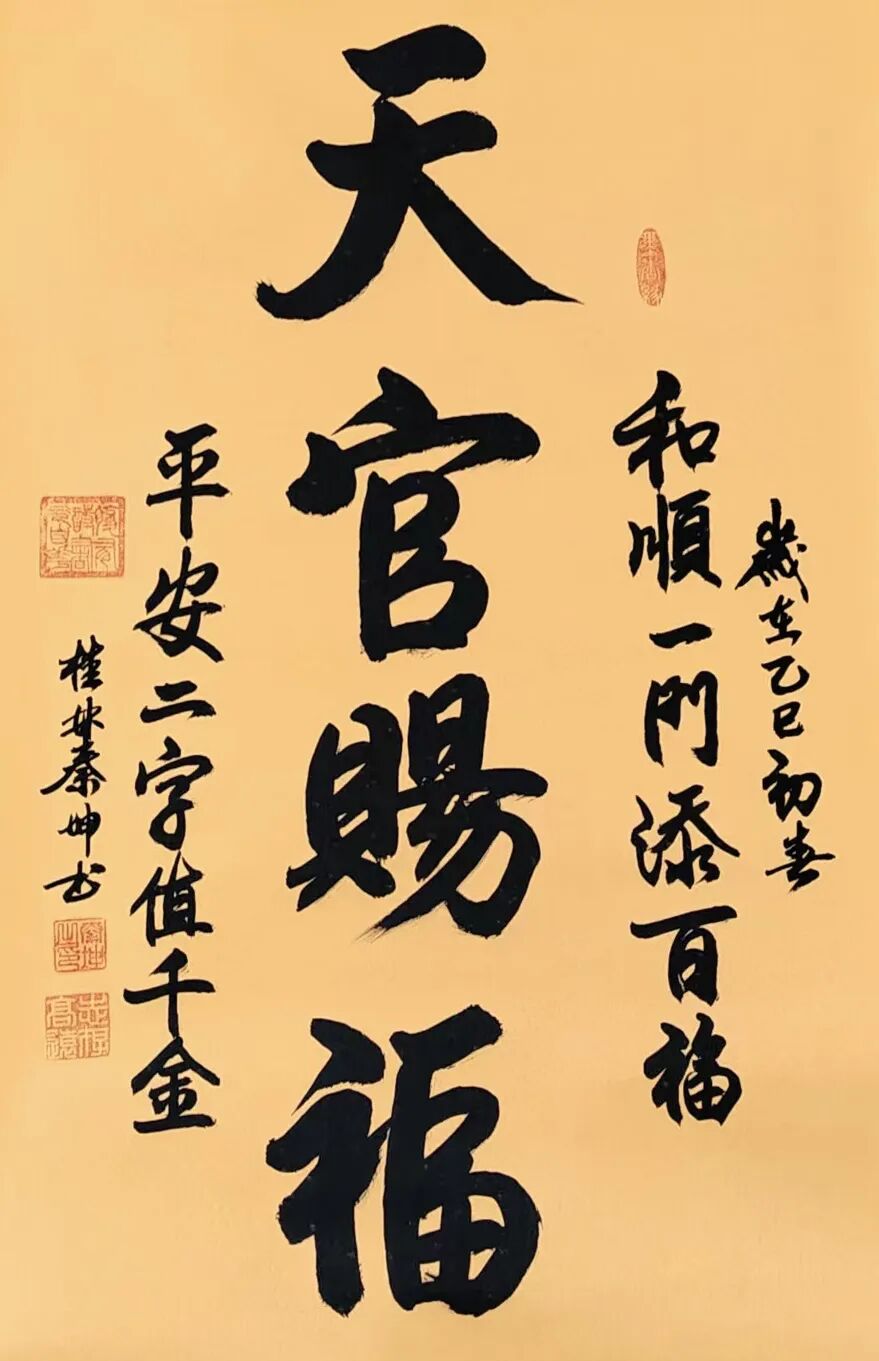 歲在乙巳初春
和順一門添百福
天官賜福
平安二字值千金
桂林秦坤书
秦坤之印